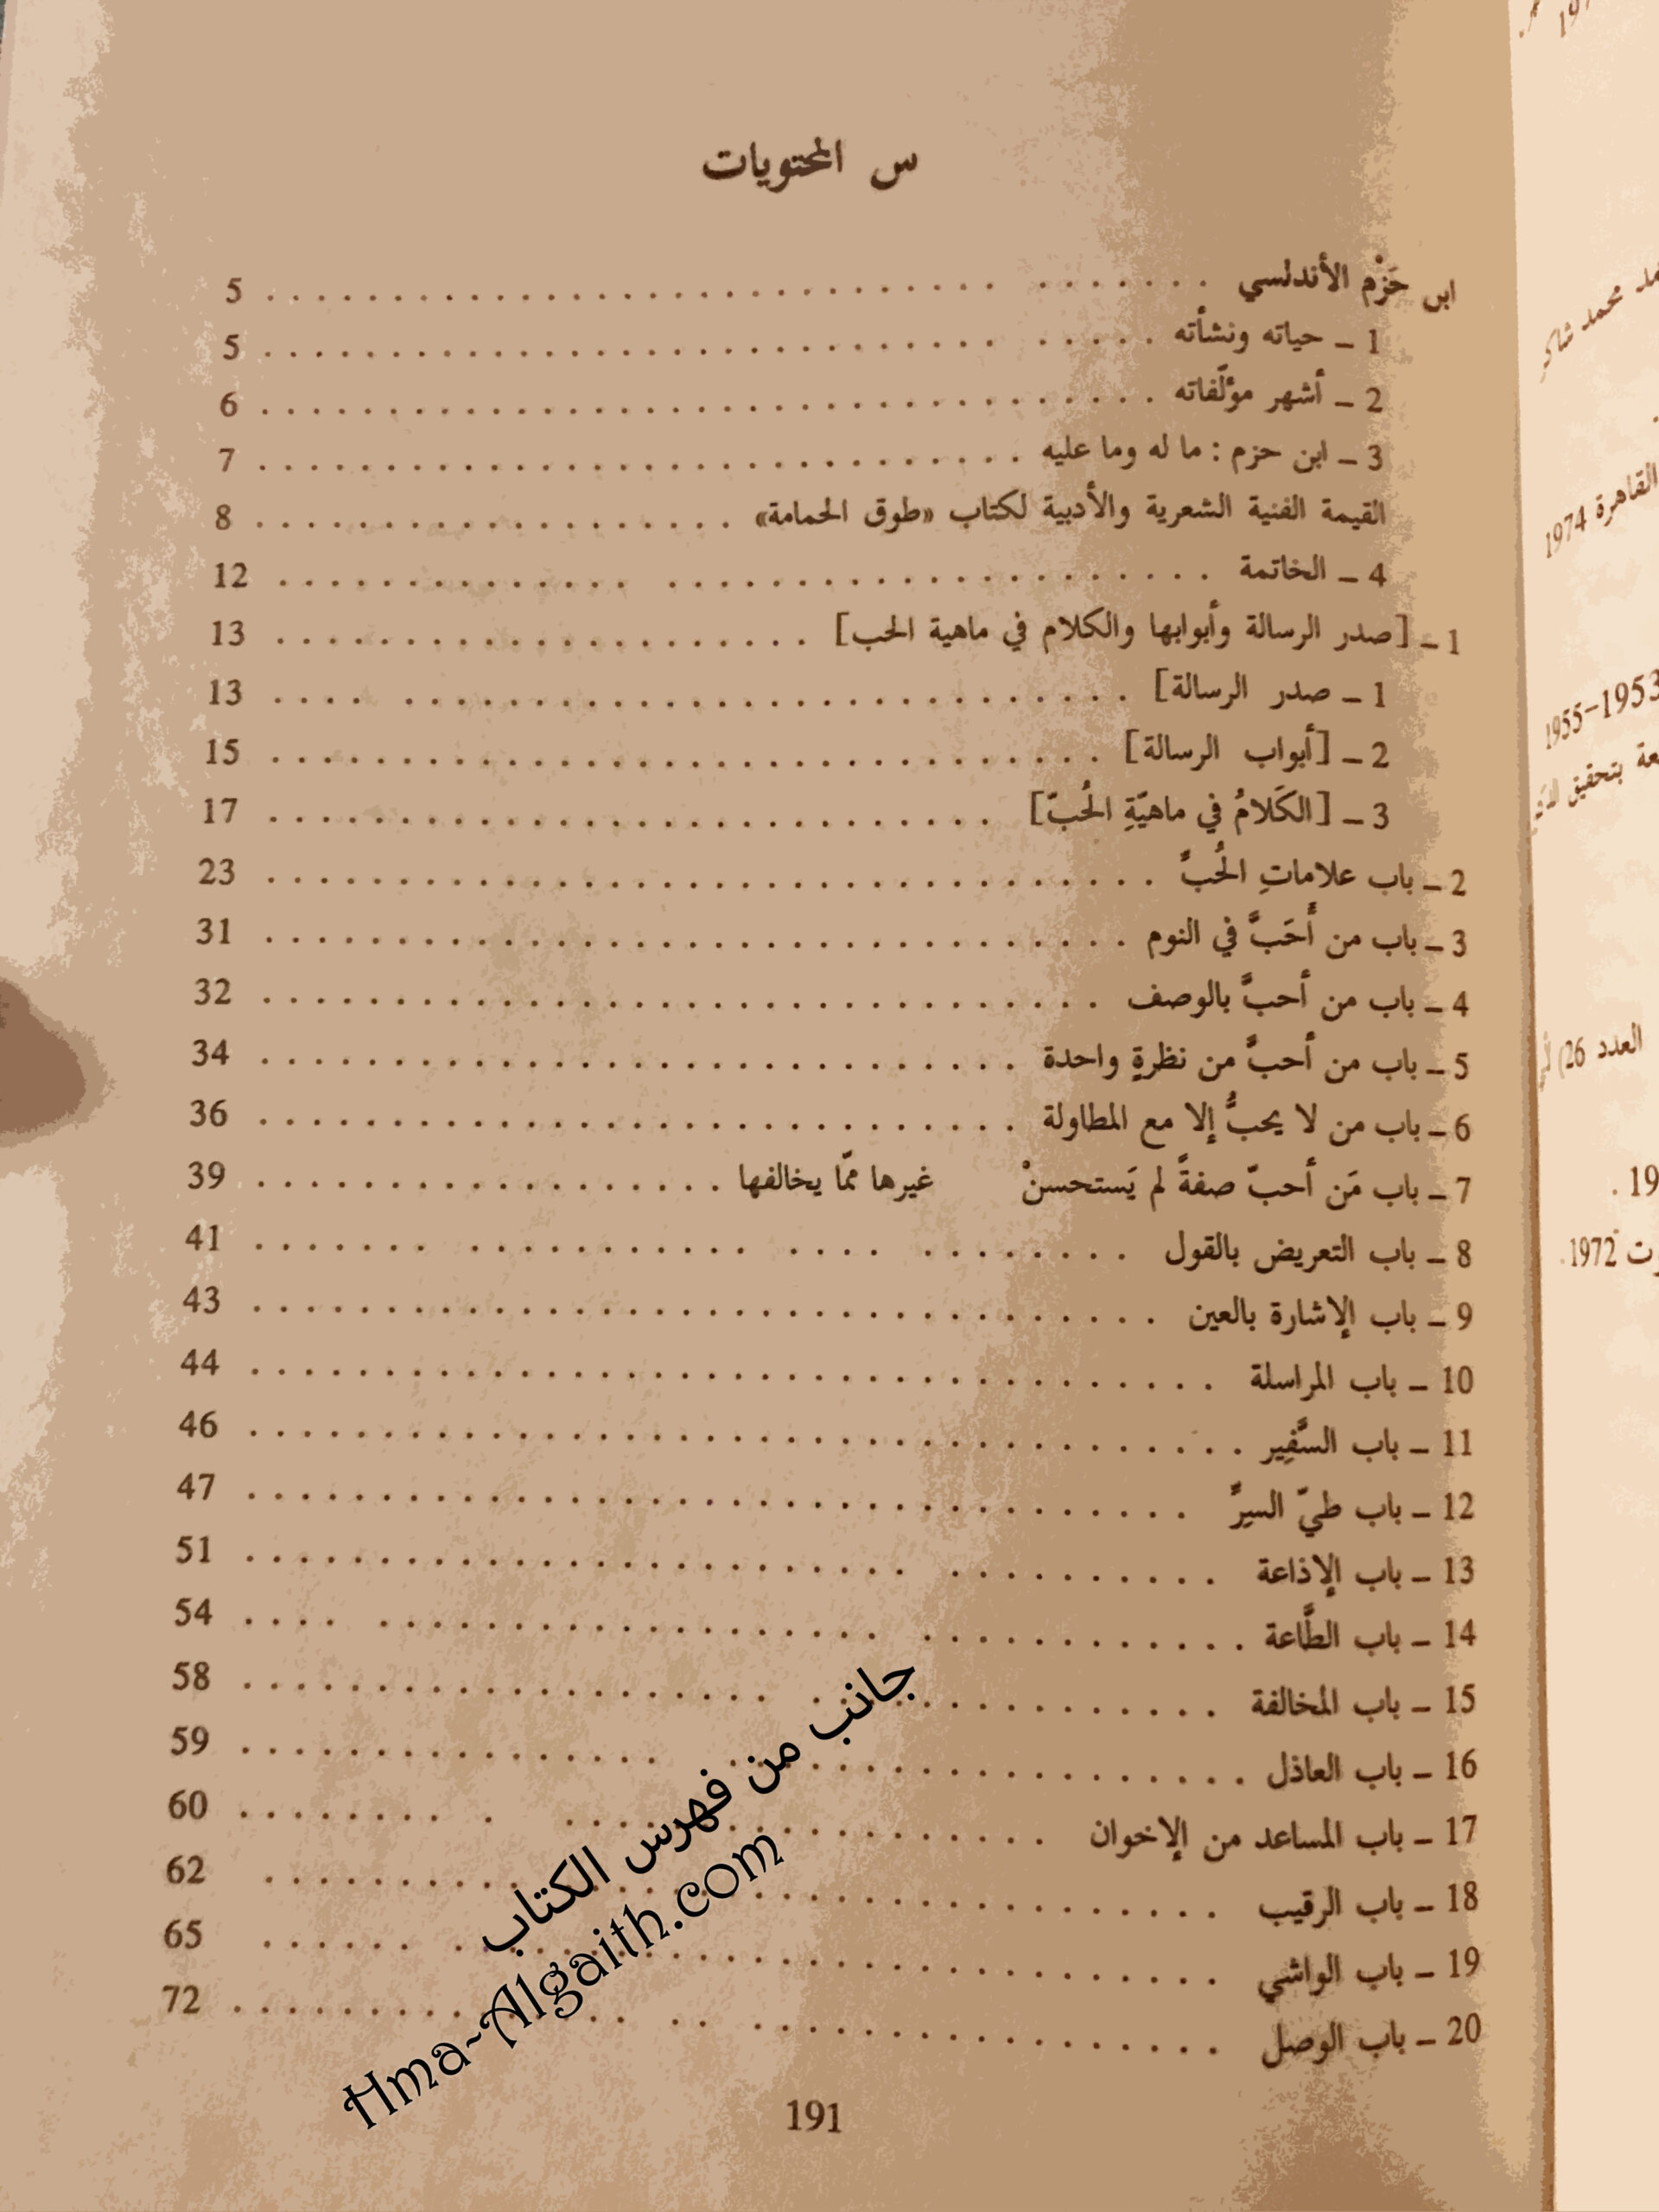 س المحتويات
ابن حَزْم الأندلسي . . . . . . . . . . 5
1 ـ حياته ونشأته . . . . . . . . . . 5
2 ـ أشهر مؤلّفاته . . . . . . . . . . 6
3 ـ ابن حزم : ما له وما عليه . . . . . . . . . . 7
القيمة الفنية الشعرية والأدبية لكتاب «طوق الحمامة» . . . . . . . . . . 8
4 ـ الخاتمة . . . . . . . . . . 12
1 ـ [صدر الرسالة وأبوابها والكلام في ماهية الحب] . . . . . . . . . . 13
1 ـ صدر الرسالة] . . . . . . . . . . 13
2 ـ [أبواب الرسالة] . . . . . . . . . . 15
3 ـ [الكَلامُ في ماهيّةِ الحُبّ] . . . . . . . . . . 17
2 ـ باب علاماتِ الحُبِّ . . . . . . . . . . 23
3 ـ باب من أَحَبَّ في النوم . . . . . . . . . . 31
4 ـ باب من أحبَّ بالوصف . . . . . . . . . . 32
5 ـ باب من أحبَّ من نظرةٍ واحدة . . . . . . . . . . 34
6 ـ باب من لا يحبُّ إلا مع المطاولة . . . . . . . . . . 36
7 ـ باب مَن أحبّ صفةً لم يَستحسنْ غيرها ممّا يخالفها . . . . . . . . . . 39
8 ـ باب التعريض بالقول . . . . . . . . . . 41
9 ـ باب الإشارة بالعين . . . . . . . . . . 43
10 ـ باب المراسلة . . . . . . . . . . 44
11 ـ باب السَّفِير . . . . . . . . . . 46
12 ـ باب طيّ السِرِّ . . . . . . . . . . 47
13 ـ باب الإذاعة . . . . . . . . . . 51
14 ـ باب الطَّاعة . . . . . . . . . . 54
15 ـ باب المخالفة . . . . . . . . . . 58
16 ـ باب العاذل . . . . . . . . . . 59
17 ـ باب المساعد من الإخوان . . . . . . . . . . 60
18 ـ باب الرقيب . . . . . . . . . . 62
19 ـ باب الواشي . . . . . . . . . . 65
20 ـ باب الوصل . . . . . . . . . . 72
191
جانب من فهرس الكتاب
Hma-Algaith.com
محمد شاكر
القاهرة 1974
1953-1955
بتحقيق
العدد 26)
1972